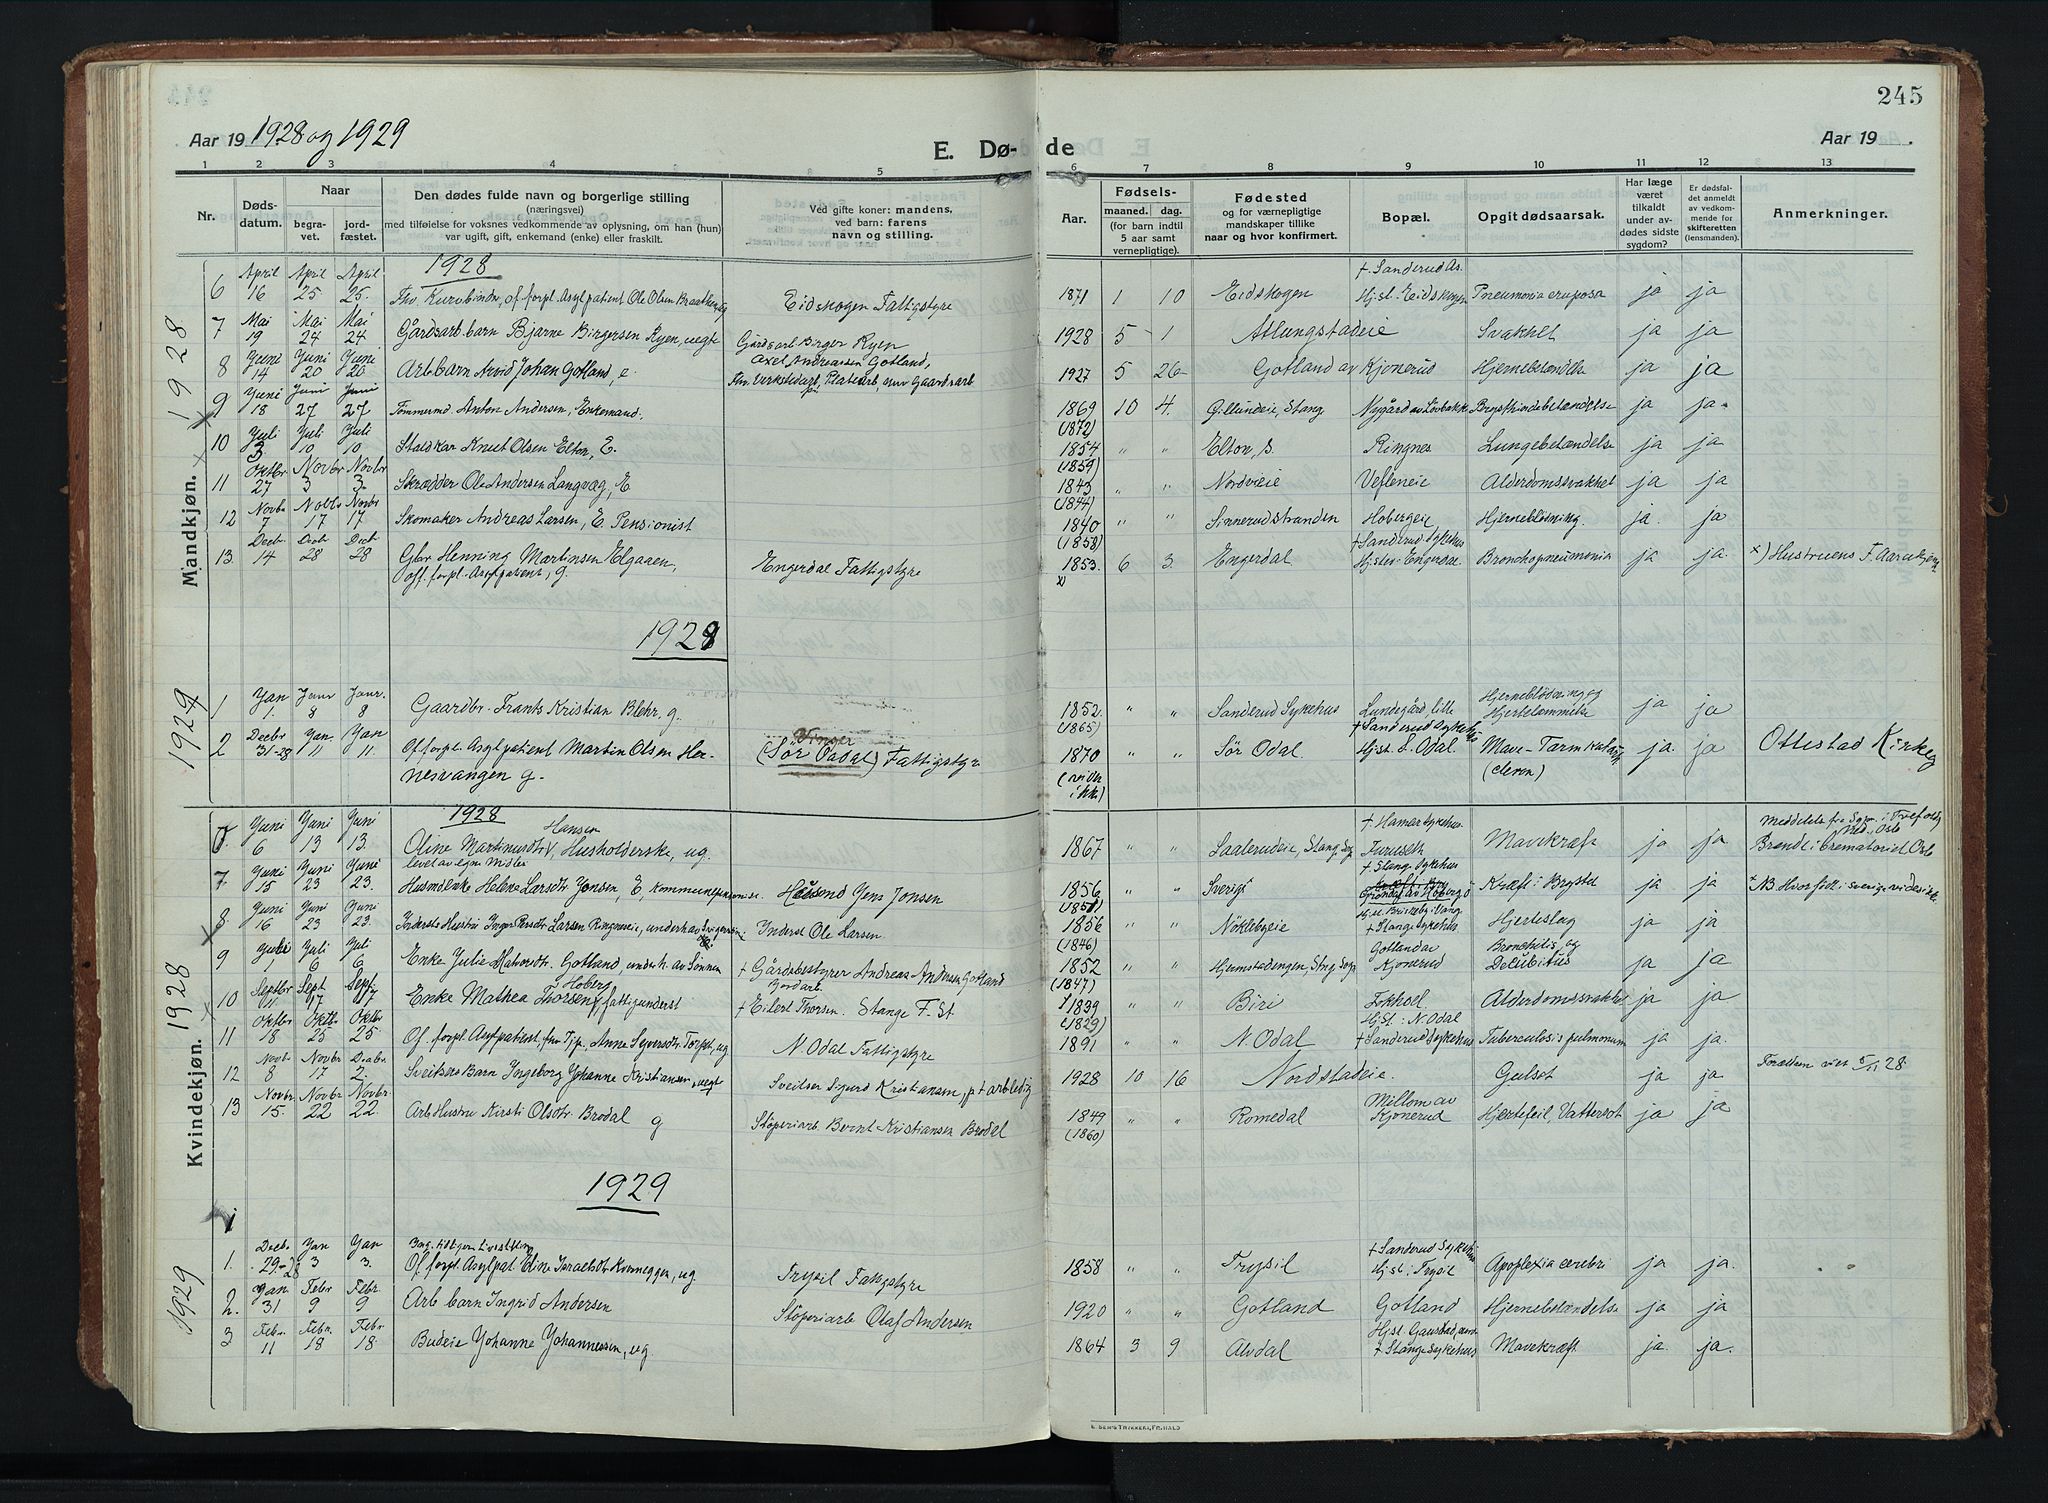 245
Aar 19 1928 og 1929
E. Dø- de
Aar 19 .
1 2 3 4 5 6 7 8 9 10 11 12 13
Nr. Døds- datum. Naar begra- vet. jord- fæstet.
Den dødes fulde navn og borgerlige stilling
(næringsvei)
med tilføielse for voksnes vedkommende av oplysning, om han (hun)
var ugift, gift, enkemand (enke) eller fraskilt.
Ved gifte koner: mandens,
ved barn: farens
navn og stilling.
Aar. Fødsels- maaned. dag.
(for barn indtil
5 aar samt
vernepligtige).
Fødested
og for værnepligtige
mandskaper tillike
naar og hvor konfirmert.
Bopæl.
Opgit dødsaarsak.
Har læge
været
tilkaldt
under av-
dødes sidste
sygdom?
Er dødsfal-
det anmeldt
av vedkom-
mende for
skifteretten
(lensmanden).
Anmerkninger.
Mandkjøn. 1928
1928
6 April 16 April 25 April 25. Fhv. Kurvbinder, off. forpl. Asylpatient Ole Olsen Braathen, ug Eidskogen Fattigstyre 1871 1 10 Eidskogen + Sanderud As. Hjst. Eidskogen Pneumonia cruposa ja ja
7 Mai 19 Mai 24 Mai 24 Gårdsarb. barn Bjarne Birgersen Ryen, uegte Gårdsarb Birger Ryen 1928 5 1 Atlungstadeie Svakhet ja ja
8 Juni 14 Juni 20 Juni 20 Arb. barn Arvid Johan Gotland, e. Axel Andreassen Gotland, Fhv. Verkstedarb, Platearb, nu Gaardsarb 1927 5 26 Gotland av Kjonerud Hjernebetændelse ja ja
9 Juni 18 Juni 27 Juni 27 Tømmermd. Anton Andersen, Enkemand. 1869 (1872) 10 4. Gillundeie, Stang. Nygård av Lovbakk Brysthindebetændelse ja ja
10 Juli 3. Juli 10 Juli 10. Staldkar Knut Olsen Elton, E. 1854 (1859) " " Elton, S. Ringnes Lungebetændelse ja ja
11 Oktbr 27 Novbr 3 Novbr 3. Skrædder Ole Andersen Langvæg, E 1843 (1844) " " Nordvieie Vefleneie Alderdomssvakhet ja ja
12 Novbr 7 Novbr 17 Novbr 17. Skomaker Andreas Larsen, E. Pensionist 1840 (1858) " " Sinnerudstranden Hobergeie Hjerneblødning. ja. ja
13. Decbr 14 Decb 28 Decb 28 Gbr Henning Martinsen Elgaaen, off. forpl. Asylpatient, g. Engerdal Fattigstyre 1853. x) 6 3. Engerdal + Sanderud Sykehus Hjstav. Engerdal Bronchopneumonia ja ja. x) Hustruens F. Aar
1929
1929
1 Jan 1. Janr 8 Janr. 8 Gaardbr. Frants Kristian Blehr, g. 1852. (1865) " " Sanderud Sykehus Lundegård lille Hjerneblødning og Hjertelammelse ja ja
2 Decbr 31-28 Jan. 11 Jan 11. Of. forpl. Asylpatient Martin Olsen Hernesvangen g. Vinger (Sør Odal) Fattigstyre 1870 (vides ikke) " " Sør Odal. + Sanderud Sykehus Hjst. S. Odal Mave-Tarm katarrh ja. ja Ottestad Kirkeg
Kvindekjøn. 1928
1928
6 Juni 6 Juni 13 Juni 13. Oline Martinusdtr Hansen, Husholderske, ug. levet av egne midler 1867 " " Saalerudeie, Stang. Sgn + Hamar Sykehus. Furuseth Mavekræft ja ja Brændt i crematoriet Oslo
7. Juni 15 Juni 23 Juni 23. Husmdenke Helene Larsdtr Jonsen, E, Husmd Jens Jonsen 1856 " " Sverige + Stange Sykehus Kræft i Brystet ja ja x NB Hvor født i Sverige vides ikke
8 Juni 16 Juni 23 Juni 23. Inderst Hustru Inger Persdtr Larsen Ringneseie, Inderst Ole Larsen 1856 (1846) " " Nöklebyeie + Stange Sykehus Hjerteslag ja ja
9 Juli 1 Juli 6 Juli 6 Enke Julie Gotland, underh. av Sønnen + Gårdsbestyrer Andreas Andersen Gotland 1852 (1847) " " Hjemstadengen, Stng Sogn Gotland av Kjonerud Bronchitis, og Decubitus ja ja
10 Septbr 11. Sept 17 Septb 17 Enke Mathea Thorsen Hoberg, fattigunderst + Eilert Thorsen. Stange F. St. 1839 (1829) " " Biri Fokhol Alderdomssvakhet ja ja
11 Oktbr 18 Oktbr 25 Oktbr 25 Of. forpl. Asylpatient. fhv Tjp, Anne Syversdtr Torpet, ug N. Odal Fattigstyre 1891 " " N. Odal Hjst: N. Odal + Sanderud Sykehus Tuberculosis pulmonum ja ja
12 Novbr 8 Novbr 17 Decbr 2. Sveitsers Barn Ingeborg Johanne Kristiansen, uegte Sveitser Sigurd Kristiansen, p t arbledig 1928 10 16 Nordstadeie. Gulsot ja ja Forældrene viet 5/11 28
13 Novbr. 15. Novbr 22 Novbr. 22. Arb Hustru Kirsti Olsdtr. Brodal g Støperiarb. Bernt Kristiansen Brodal 1849 (1860) " " Romedal Millom av Kjonerud Hjertefeil, Vattersot ja ja
1929
1929
1. Decbr 29-28 Jan 3 Jan 3. Of. forpl. Asylpat. Eline Israelsdtr Kvernneggen, ug Trysil Fattigstyre 1858 " " Trysil + Sanderud Sykehus Hjst. i Trysil Apoplexia cerebri ja ja
2. Jan. 31 Febr 9 Febr. 9 Arb barn Ingrid Andersen Støperiarb Olaf Andersen 1920 " " Gotland Gotland Hjernebetændelse ja ja
3 Febr. 11 Febr. 18 Febr 18. Budeie Johanne Johannessen, ug 1864 3 9 Alvdal Hjst. Gaustad, + Stange Sykehus Mavekræft ja. ja.